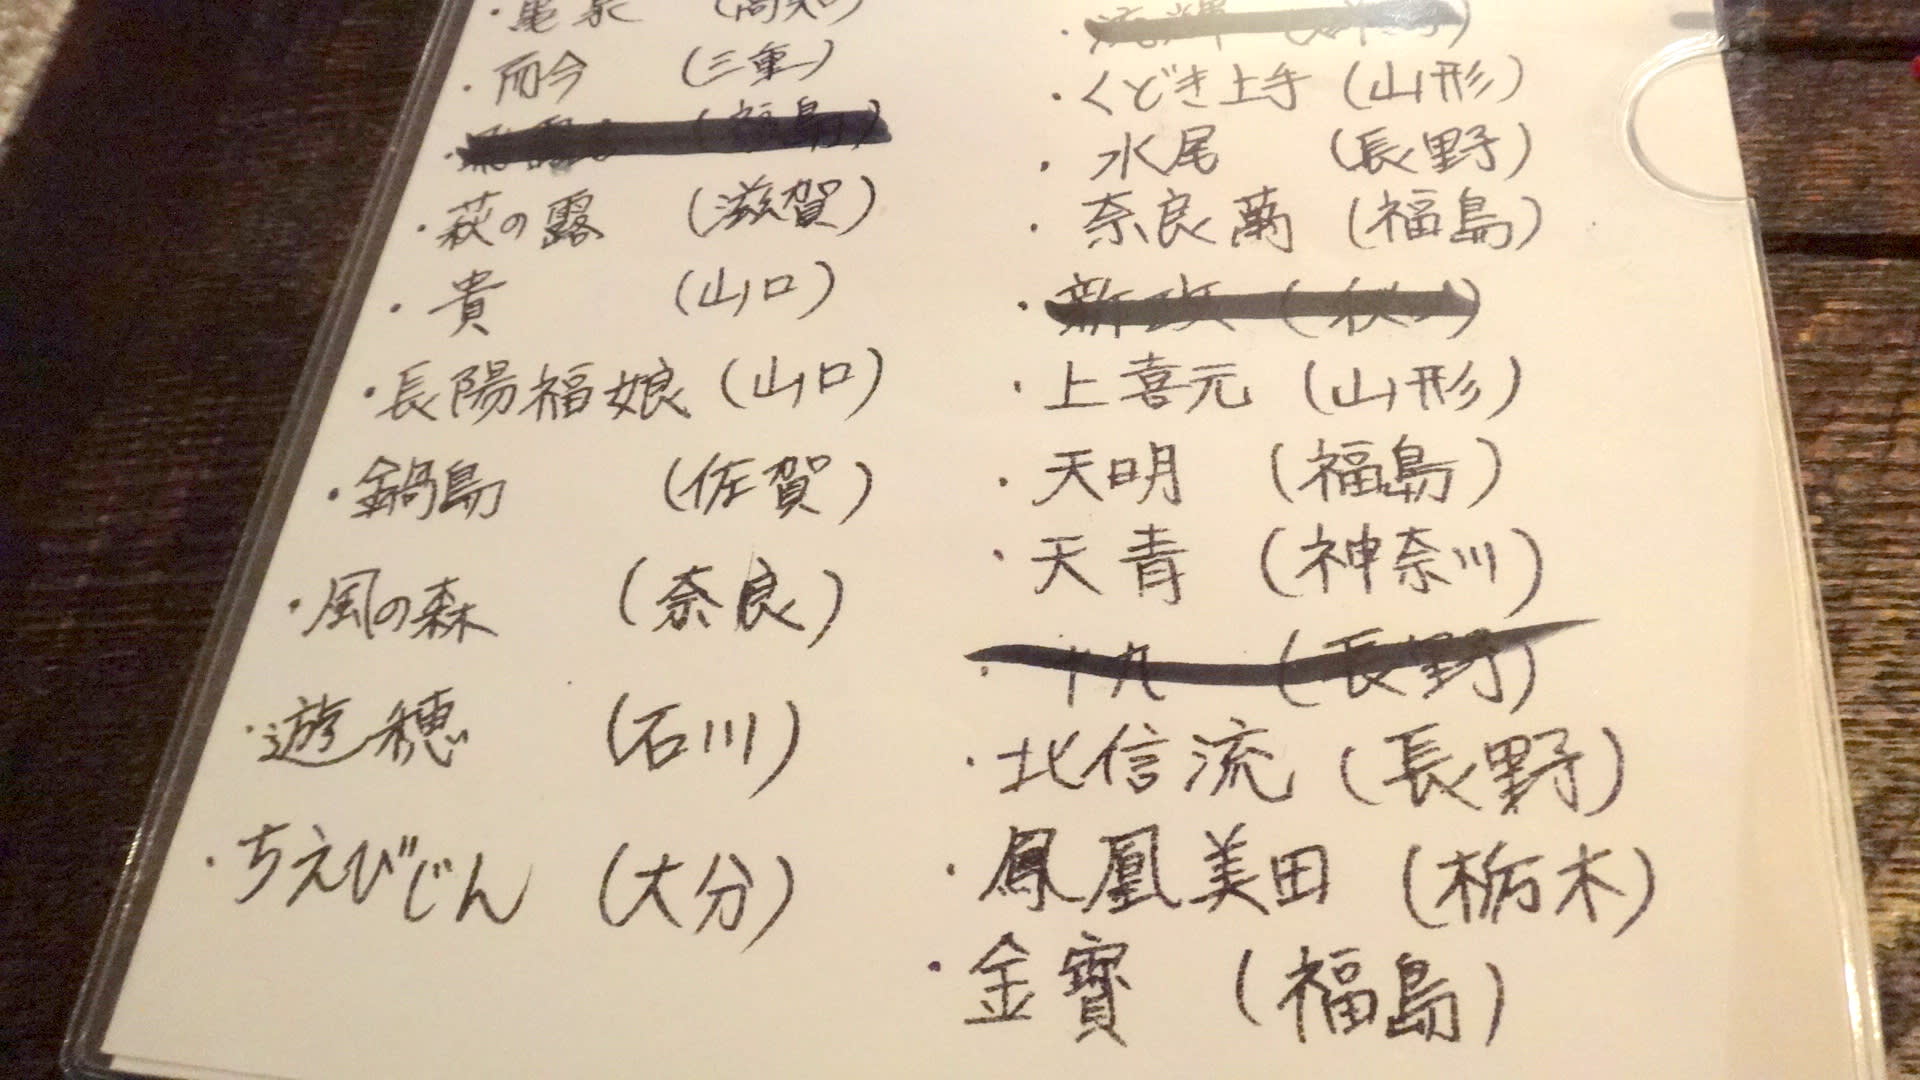 ・亀泉 (高知)
・而今 (三重)
(福島)
・萩の露 (滋賀)
・貴 (山口)
・長陽福娘 (山口)
・鍋島 (佐賀)
・風の森 (奈良)
・遊穂 (石川)
・ちえびじん (大分)
・くどき上手 (山形)
・水尾 (長野)
・奈良萬 (福島)
・新政 (秋田)
・上喜元 (山形)
・天明 (福島)
・天青 (神奈川)
・十九 (長野)
・北信流 (長野)
・鳳凰美田 (栃木)
・金寶 (福島)